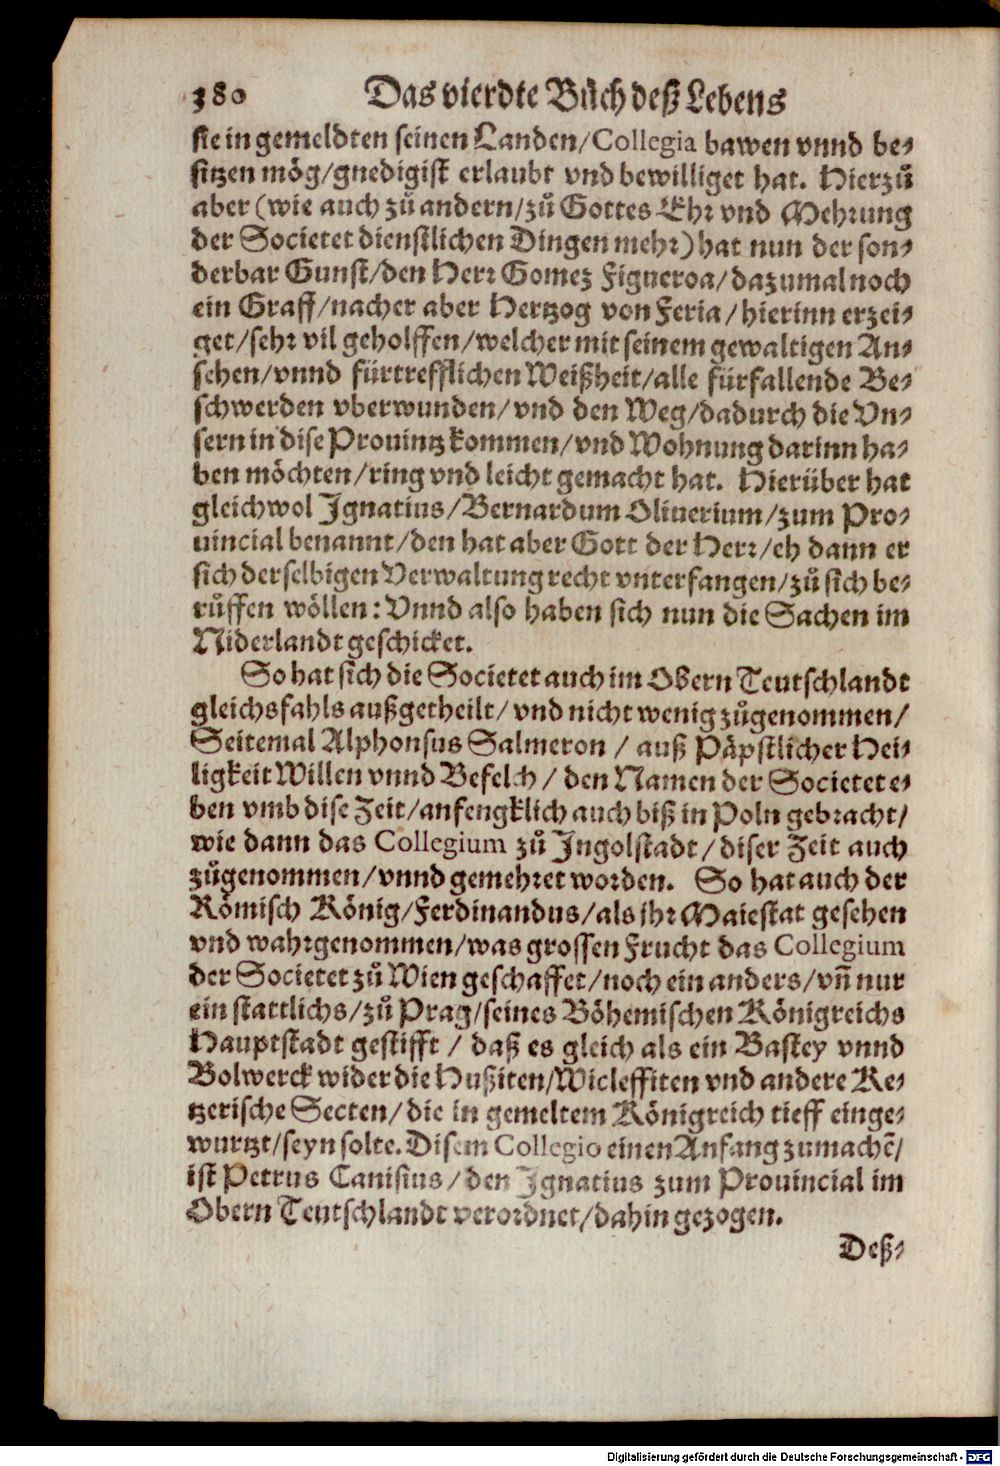 380 Das vierdte Bůch deß Lebens
sie in gemeldten seinen Landen/Collegia bawen vnnd be-
sitzen mög/gnedigist erlaubt vnd bewilliget hat. Hierzů
aber (wie auch zů andern/zů Gottes Ehr vnd Mehrung
der Societet dienstlichen Dingen mehr) hat nun der son-
derbar Gunst/den Herr Gomez Figueroa/dazumal noch
ein Graff/nacher aber Hertzog von Feria/hierinn erzei-
get/sehr vil geholffen/welcher mit seinem gewaltigen An-
sehen/vnnd fürtrefflichen Weißheit/alle fürfallende Be-
schwerden vberwunden/vnd den Weg/dadurch die Vn-
sern in dise Prouintz kommen/vnd Wohnung darinn ha-
ben möchten/ring vnd leicht gemacht hat. Hierüber hat
gleichwol Ignatius/Bernardum Oliuerium/zum Pro-
uincial benannt/den hat aber Gott der Herr/eh dann er
sich derselbigen Verwaltung recht vnterfangen/zů sich be-
růffen wöllen: Vnnd also haben sich nun die Sachen im
Niderlandt geschicket.
So hat sich die Societet auch im Obern Teutschlandt
gleichsfahls außgetheilt/vnd nicht wenig zůgenommen/
Seitemal Alphonsus Salmeron/auß Päpstlicher Hei-
ligkeit Willen vnnd Befelch/den Namen der Societet e-
ben vmb dise Zeit/anfengklich auch biß in Poln gebracht/
wie dann das Collegium zů Ingolstadt/diser Zeit auch
zůgenommen/vnnd gemehret worden. So hat auch der
Römisch König/Ferdinandus/als ihr Maiestat gesehen
vnd wahrgenommen/was grossen Frucht das Collegium
der Societet zů Wien geschaffet/noch ein anders/vñ nur
ein stattlichs/zů Prag/seines Böhemischen Königreichs
Hauptstadt gestifft/daß es gleich als ein Bastey vnnd
Bolwerck wider die Hußiten/Wicleffiten vnd andere Ke-
tzerische Secten/die in gemeltem Königreich tieff einge-
wurtzt/seyn solte. Disem Collegio einen Anfang zumachẽ/
ist Petrus Canisius/den Ignatius zum Prouincial im
Obern Teutschlandt verordnet/dahin gezogen.
Deß-
Digitalisierung gefördert durch die Deutsche Forschungsgemeinschaft - DFG